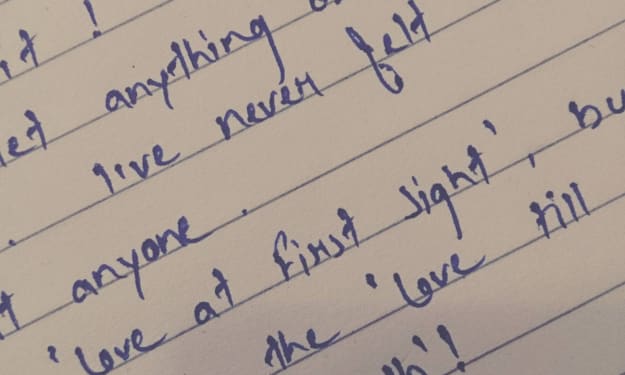 it !
let anything
I've never felt
t anyone .
'love at first sight', bu
the 'love till
th'!